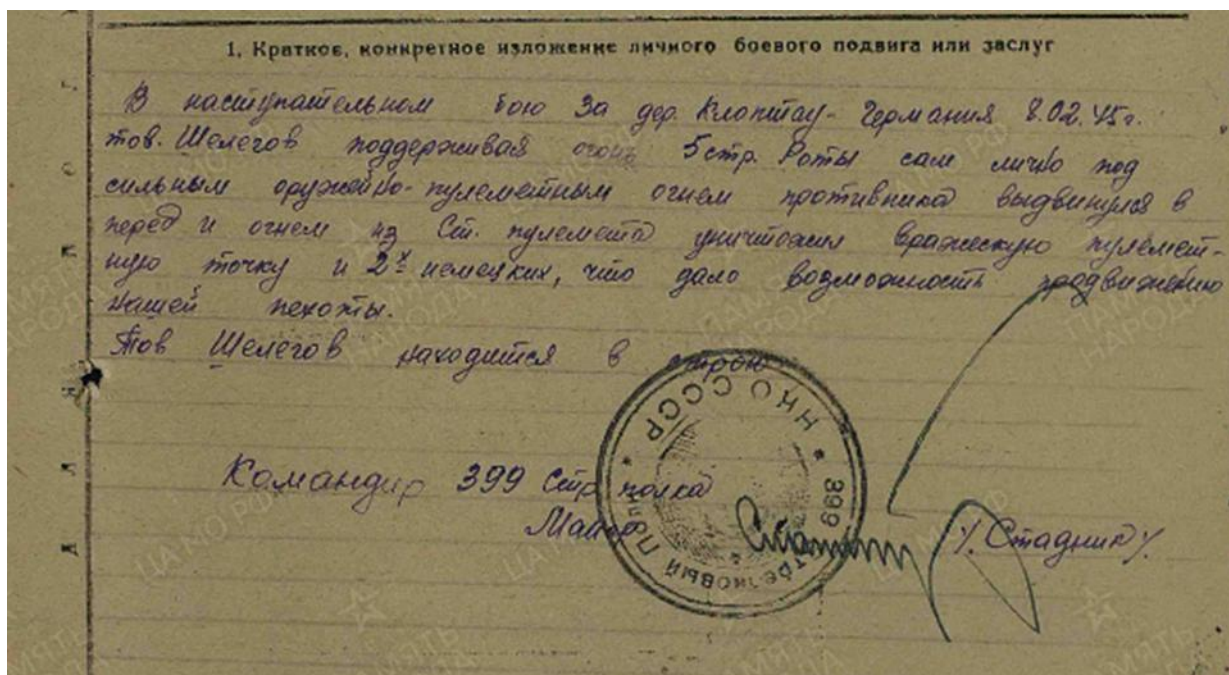 1. Краткое, конкретное изложение личного боевого подвига или заслуг
В наступательном бою за дер. Клоптау - Германия 8.02.45г.
тов. Шелегов поддерживая огонь 5 стр. Роты сам лично под
сильным оружейно-пулеметным огнем противника выдвинулся в
перед и огнем из Ст. пулемета уничтожил вражескую пулемет-
ную точку и 2х немецких, что дало возможность продвижению
нашей пехоты.
Тов Шелегов находится в строю
Командир 399 Стр полка
Майор /. Стадник /.
399 Стрелковый Полк * НКО СССР *
ЦА МО РФ
ПАМЯТЬ НАРОДА